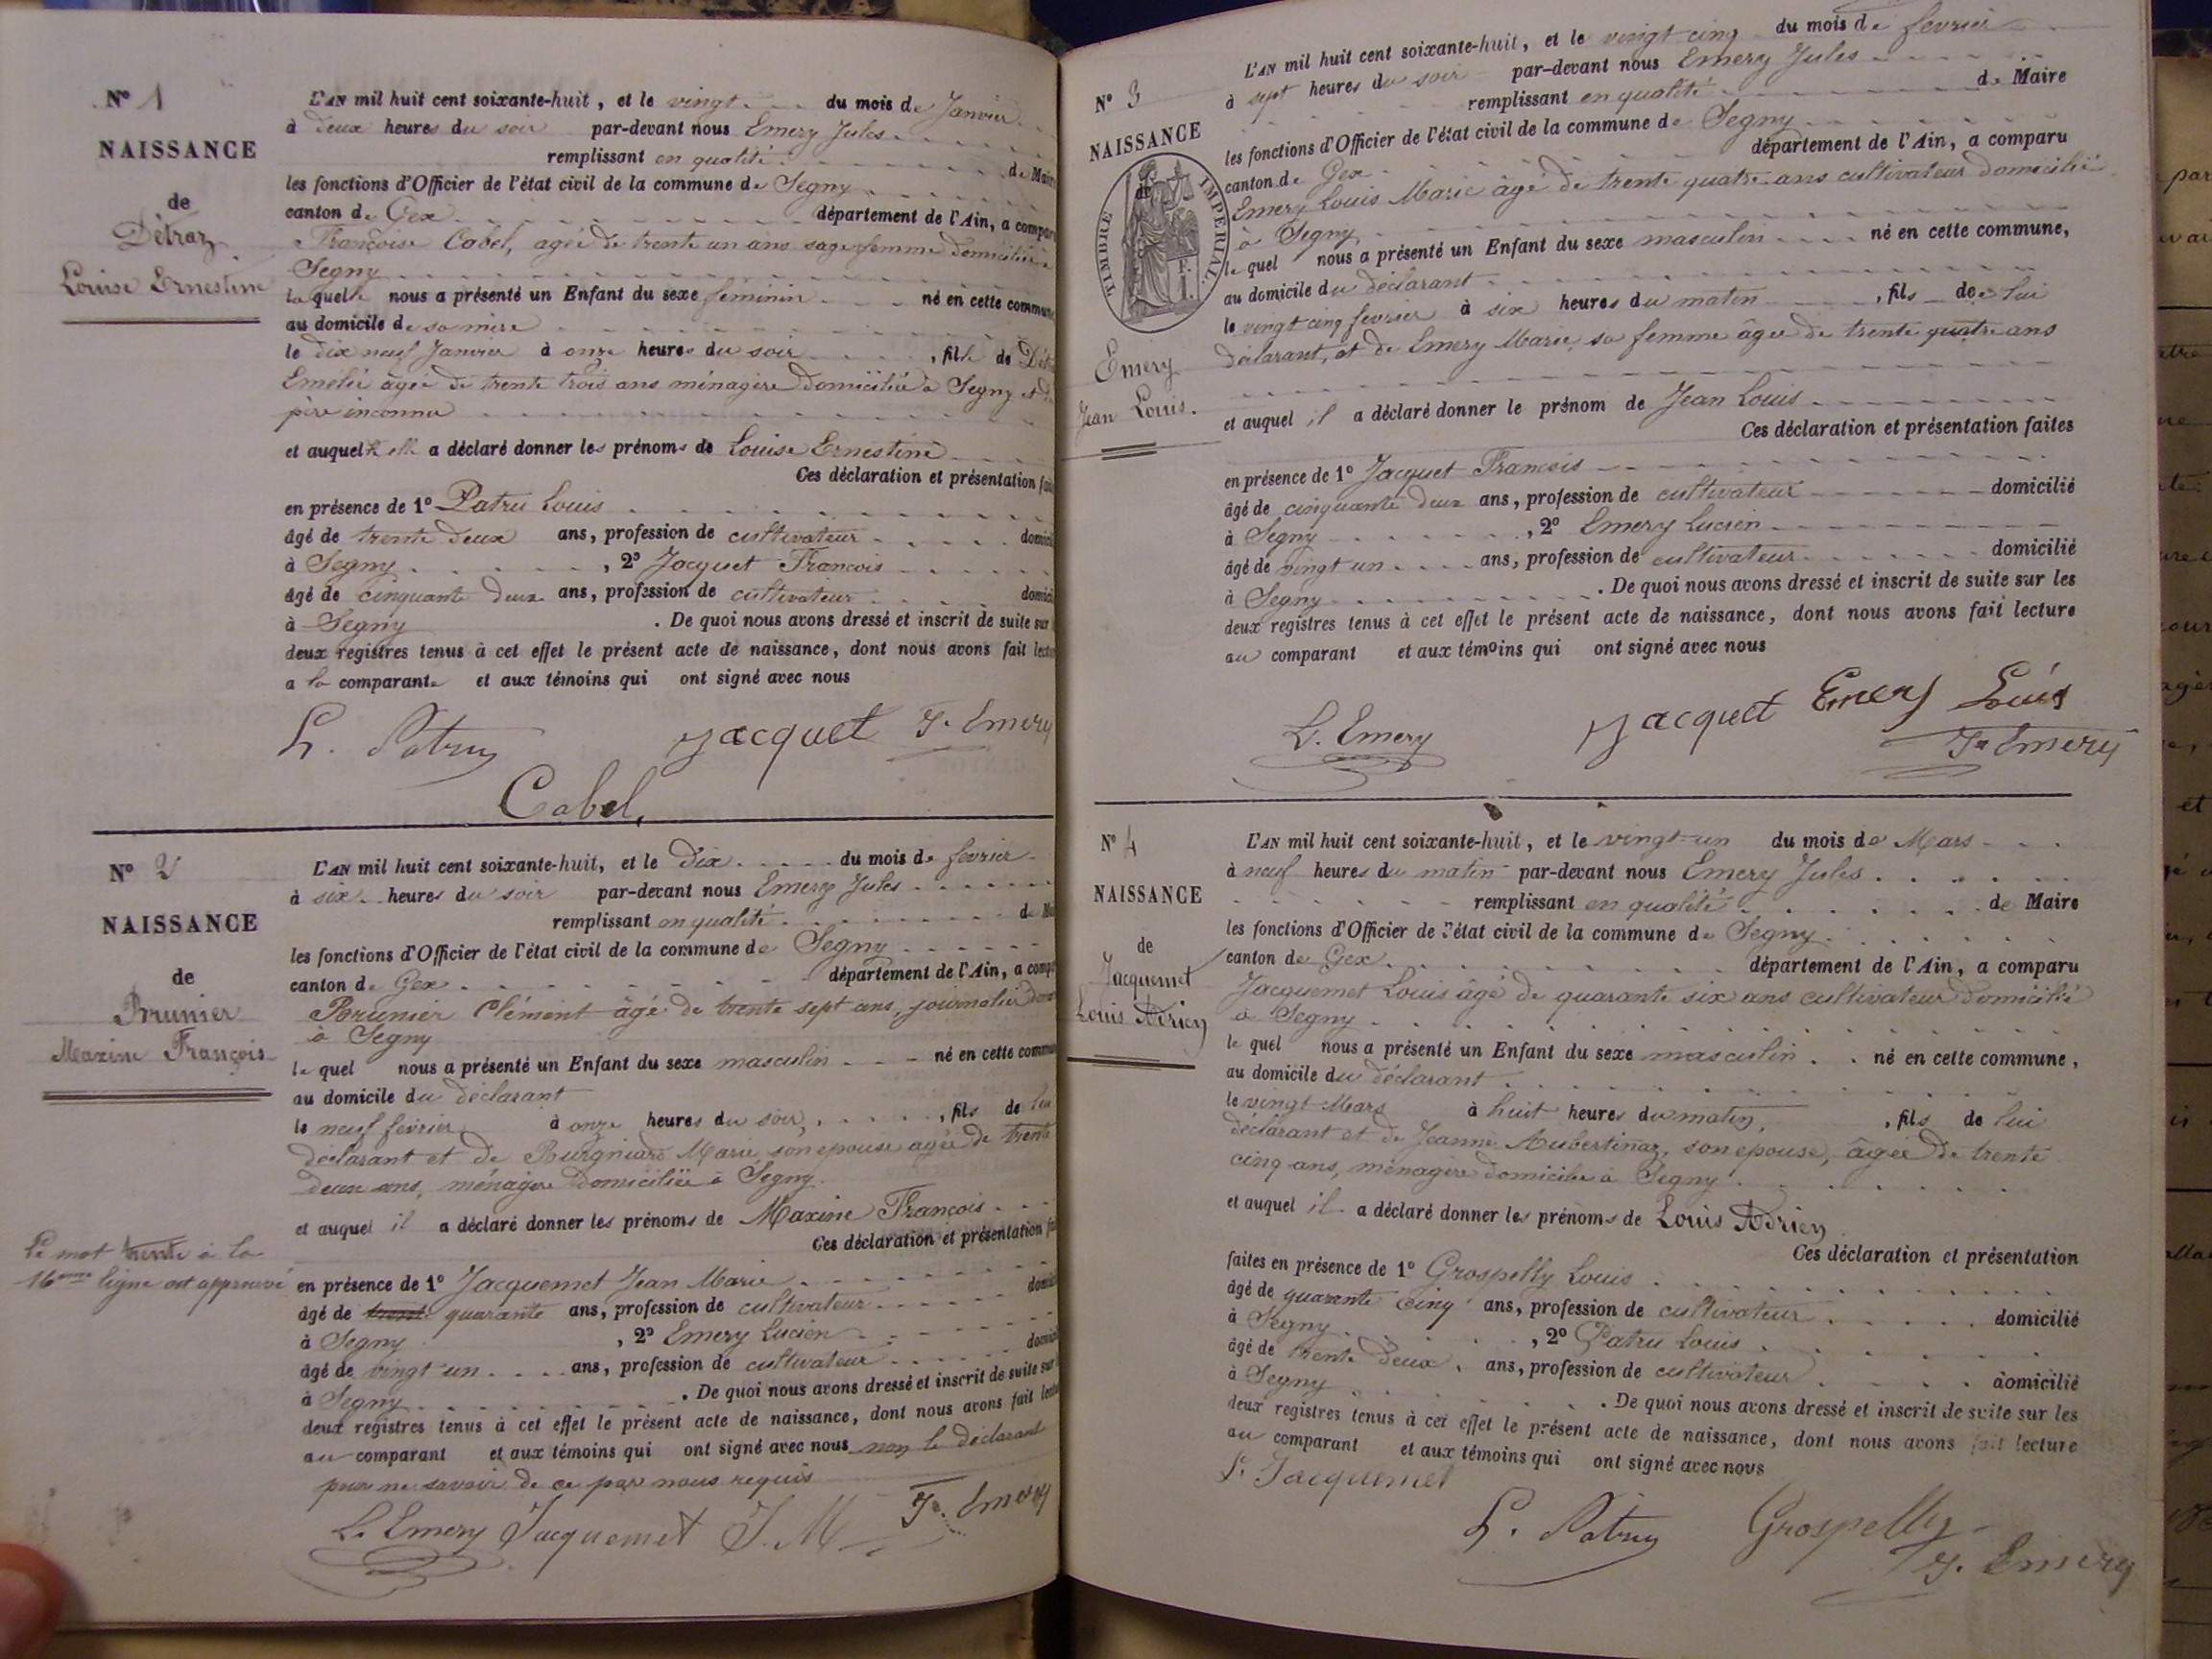 N° 1
NAISSANCE
de
Détraz
Louise Ernestine
L'AN mil huit cent soixante-huit, et le vingt du mois de Janvier
à deux heures du soir par-devant nous Emery Jules
remplissant en qualité de Maire
les fonctions d'Officier de l'état civil de la commune de Segny
canton de Gex département de l'Ain, a comparu
Françoise Cabel, agée de trente un ans sage femme domiciliée à
Segny
laquelle nous a présenté un Enfant du sexe féminin né en cette commune
au domicile de sa mère
le dix neuf Janvier à onze heures du soir, fille de Dét
Emélie âgée de trente trois ans ménagère domiciliée à Segny et de
père inconnu
et auquel elle a déclaré donner les prénoms de Louise Ernestine
Ces déclaration et présentation fai
en présence de 1° Patru Louis
âgé de trente deux ans, profession de cultivateur domici
à Segny, 2° Jacquet Francois
âgé de cinquante deux ans, profession de cultivateur domici
à Segny. De quoi nous avons dressé et inscrit de suite sur
deux registres tenus à cet effet le présent acte de naissance, dont nous avons fait lectu
a la comparante et aux témoins qui ont signé avec nous
L. Patru Jacquet J. Emery
Cabel,
N° 2
NAISSANCE
de
Brunier
Maxime François
Le mot trente à la
16eme ligne est approuvé
L'AN mil huit cent soixante-huit, et le dix du mois de fevrier
à six heures du soir par-devant nous Emery Jules
remplissant en qualité de M
les fonctions d'Officier de l'état civil de la commune de Segny
canton de Gex département de l'Ain, a comp
Brunier Clément âgé de trente sept ans, journalier dom
à Segny
le quel nous a présenté un Enfant du sexe masculin né en cette commun
au domicile du déclarant
le neuf février à onze heures du soir, fils de lui
déclarant et de Burgniard Marie son epouse agée de trente
deux ans, ménagère domiciliée à Segny
et auquel il a déclaré donner les prénoms de Maxime François
Ces déclaration et présentation fai
en présence de 1° Jacquemet Jean Marie
âgé de trente quarante ans, profession de cultivateur domici
à Segny, 2° Emery Lucien
âgé de vingt un ans, profession de cultivateur domici
à Segny. De quoi nous avons dressé et inscrit de suite sur
deux registres tenus à cet effet le présent acte de naissance, dont nous avons fait lectu
au comparant et aux témoins qui ont signé avec nous non le déclarant
pour ne savoir de ce par nous requis
L. Emery Jacquemet J. M J. Emery
N° 3
NAISSANCE
de
TIMBRE IMPERIAL
F.
1.
Emery
Jean Louis.
L'AN mil huit cent soixante-huit, et le vingt cinq du mois de fevrier
à sept heures du soir par-devant nous Emery Jules
remplissant en qualité de Maire
les fonctions d'Officier de l'état civil de la commune de Segny
canton de Gex département de l'Ain, a comparu
Emery Louis Marie âgé de trente quatre ans cultivateur domicilié
à Segny
le quel nous a présenté un Enfant du sexe masculin né en cette commune,
au domicile du déclarant
le vingt cinq fevrier à six heures du matin, fils de lui
déclarant, et de Emery Marie, sa femme âgée de trente quatre ans
et auquel il a déclaré donner le prénom de Jean Louis
Ces déclaration et présentation faites
en présence de 1° Jacquet Francois
âgé de cinquante deux ans, profession de cultivateur domicilié
à Segny, 2° Emery Lucien
âgé de vingt un ans, profession de cultivateur domicilié
à Segny. De quoi nous avons dressé et inscrit de suite sur les
deux registres tenus à cet effet le présent acte de naissance, dont nous avons fait lecture
au comparant et aux témoins qui ont signé avec nous
L. Emery Jacquet Emery Louis
J. Emery
N° 4
NAISSANCE
de
Jacquemet
Louis Adrien
L'AN mil huit cent soixante-huit, et le vingt-un du mois de Mars
à neuf heures du matin par-devant nous Emery Jules
remplissant en qualité de Maire
les fonctions d'Officier de l'état civil de la commune de Segny
canton de Gex département de l'Ain, a comparu
Jacquemet Louis âgé de quarante six ans cultivateur domicilié
à Segny
le quel nous a présenté un Enfant du sexe masculin né en cette commune,
au domicile du déclarant
le vingt Mars à huit heures du matin, fils de lui
déclarant et de Jeanne Aubertinaz, son epouse, âgée de trente
cinq ans, ménagère domiciliée à Segny
et auquel il a déclaré donner les prénoms de Louis Adrien
Ces déclaration et présentation
faites en présence de 1° Grospelly Louis
âgé de quarante cinq ans, profession de cultivateur domicilié
à Segny, 2° Patru Louis
âgé de trente deux ans, profession de cultivateur domicilié
à Segny. De quoi nous avons dressé et inscrit de suite sur les
deux registres tenus à cet effet le présent acte de naissance, dont nous avons fait lecture
au comparant et aux témoins qui ont signé avec nous
L. Jacquemet
L. Patru Grospelly
J. Emery